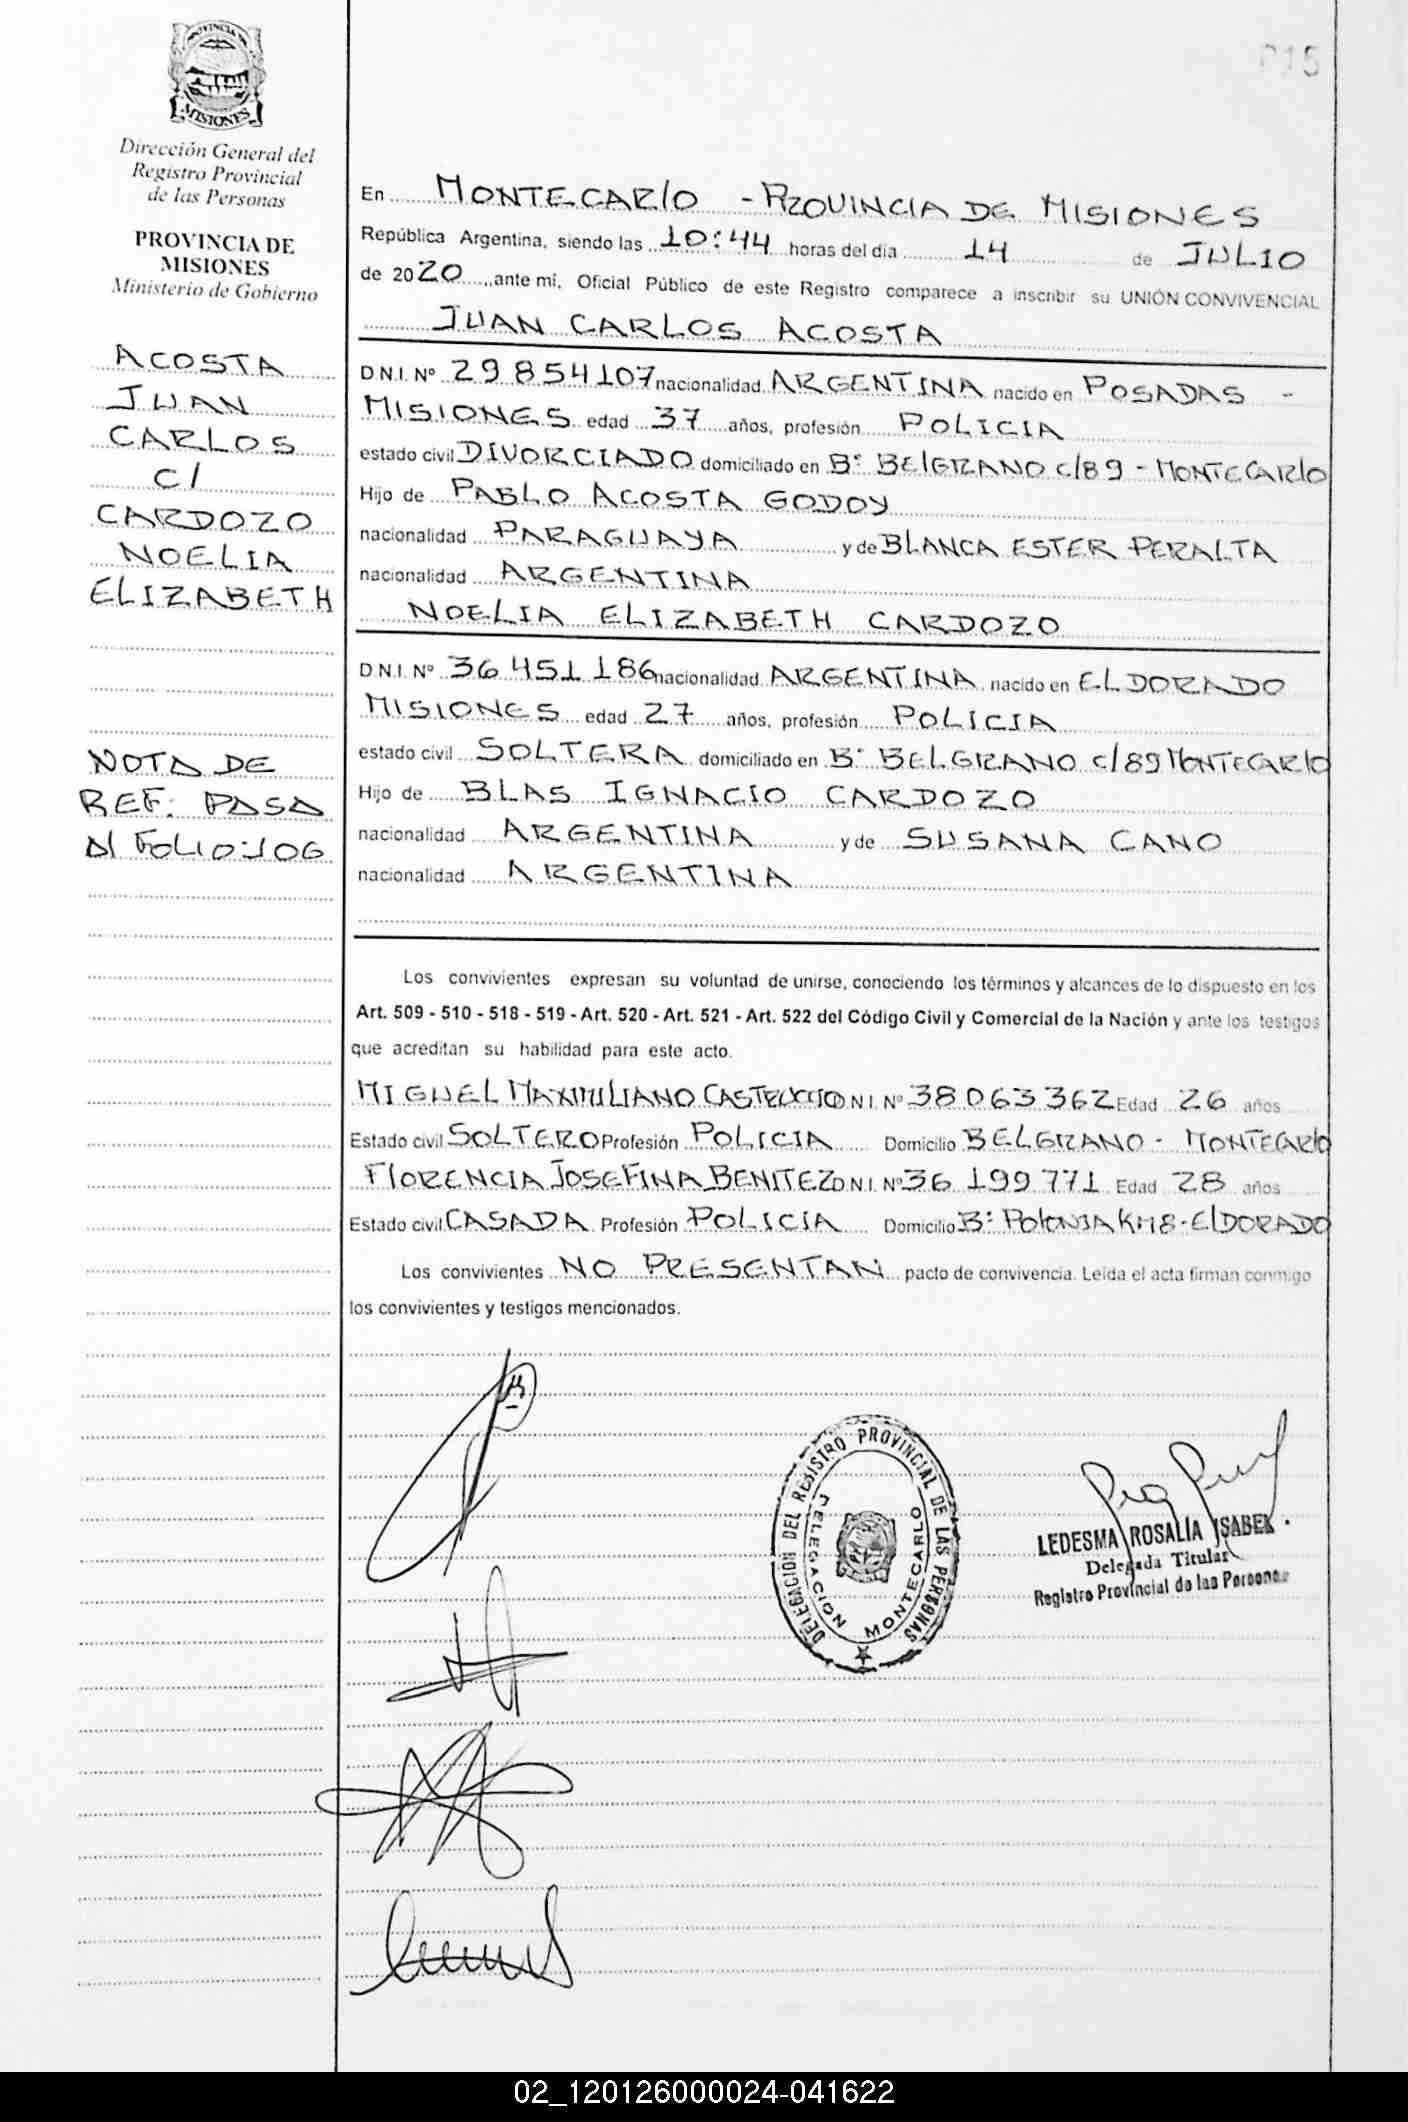 015
PROVINCIA DE
MISIONES
Dirección General del
Registro Provincial
de las Personas
PROVINCIA DE
MISIONES
Ministerio de Gobierno
ACOSTA
JUAN
CARLOS
C/
CARDOZO
NOELIA
ELIZABETH
NOTA DE
REF: PASA
Al FOLIO: 106
En MONTECARlO - PROVINCIA DE MISIONES
República Argentina, siendo las 10:44 horas del día 14 de JULIO
de 2020, ante mí, Oficial Público de este Registro comparece a inscribir su UNIÓN CONVIVENCIAL
JUAN CARLOS ACOSTA
D.N.I. Nº 29 854 107 nacionalidad ARGENTINA nacido en POSADAS -
MISIONES edad 37 años, profesión POLICIA
estado civil DIVORCIADO domiciliado en Bº BElGRANO c/89 - MONTECARlO
Hijo de PABLO ACOSTA GODOY
nacionalidad PARAGUAYA y de BLANCA ESTER PERALTA
nacionalidad ARGENTINA
NOELIA ELIZABETH CARDOZO
D.N.I. Nº 36 451 186 nacionalidad ARGENTINA nacido en ELDORADO
MISIONES edad 27 años, profesión POLICIA
estado civil SOLTERA domiciliado en Bº BELGRANO c/89 MONTECARlO
Hijo de BLAS IGNACIO CARDOZO
nacionalidad ARGENTINA y de SUSANA CANO
nacionalidad ARGENTINA
Los convivientes expresan su voluntad de unirse, conociendo los términos y alcances de lo dispuesto en los
Art. 509 - 510 - 518 - 519 - Art. 520 - Art. 521 - Art. 522 del Código Civil y Comercial de la Nación y ante los testigos
que acreditan su habilidad para este acto.
MIGUEL MAXIMILIANO D.N.I. Nº 38 063 362 Edad 26 años
Estado civil SOLTERO Profesión POLICIA Domicilio BELGRANO - MONTECARlO
FlORENCIA JOSEFINA BENITEZ D.N.I. Nº 36 199 771 Edad 28 años
Estado civil CASADA Profesión POLICIA Domicilio Bº POlONIA KM8 - ElDORADO
Los convivientes NO PRESENTAN pacto de convivencia. Leída el acta firman conmigo
los convivientes y testigos mencionados.
DELEGACION DEL REGISTRO PROVINCIAL DE LAS PERSONAS
DELEGACION MONTECARLO
LEDESMA ROSALÍA ISABEL
Delegada Titular
Registro Provincial de las Personas
02_120126000024-041622